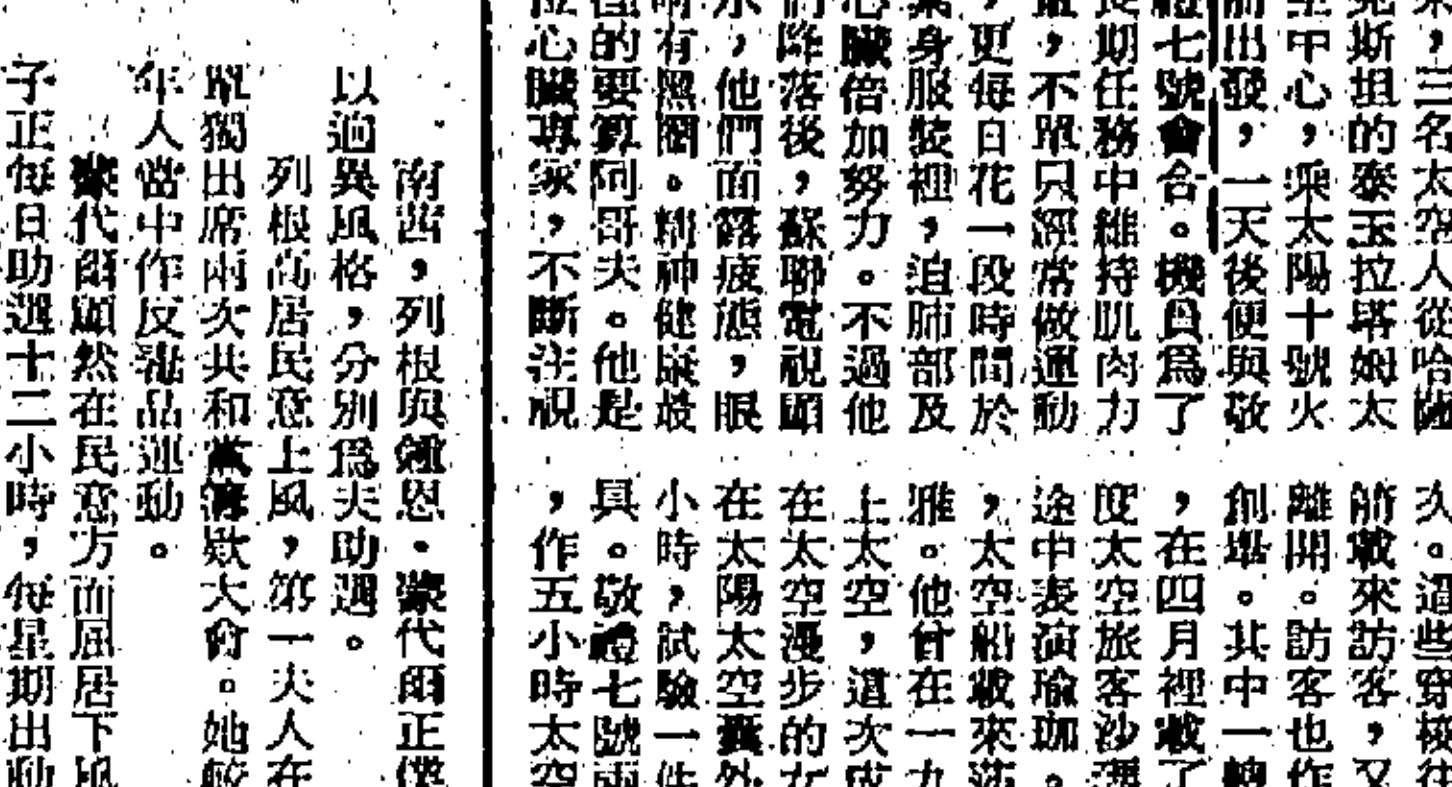 ，三名太空人從哈薩
克斯坦的泰玉拉塔姆太
空中心，乘太陽十號火
箭出發，一天後便與敬
禮七號會合。機員爲了
長期任務中維持肌肉力
量，不單只經常做運動
，更每日花一段時間於
身服裝裡，迫肺部及
心臟倍加努力。不過他
們降落後，蘇聯電視顯
示，他們面露疲態，眼
有黑圈。精神健康最
佳的要算阿哥夫。他是
位心臟專家，不斷注視
次。這些穿梭往
箭載來訪客，又
離開。訪客也作
創舉。其中一艘
，在四月裡載了
度太空旅客沙
途中表演瑜珈。
，太空船載來莎
雅。他曾在一九
上太空，這次成
在太空漫步的女
在太陽太空囊外
小時，試驗一件
具。敬禮七號兩
，作五小時太空
南茜，列根與鍾恩．蒙代爾正僕
以逈異風格，分別爲夫助選。
列根高居民意上風，第一夫人在
單獨出席兩次共和黨籌欵大會。她較
年人當中作反毒品運動。
蒙代爾顯然在民意方面屈居下風
子正每日助選十二小時，每星期出動